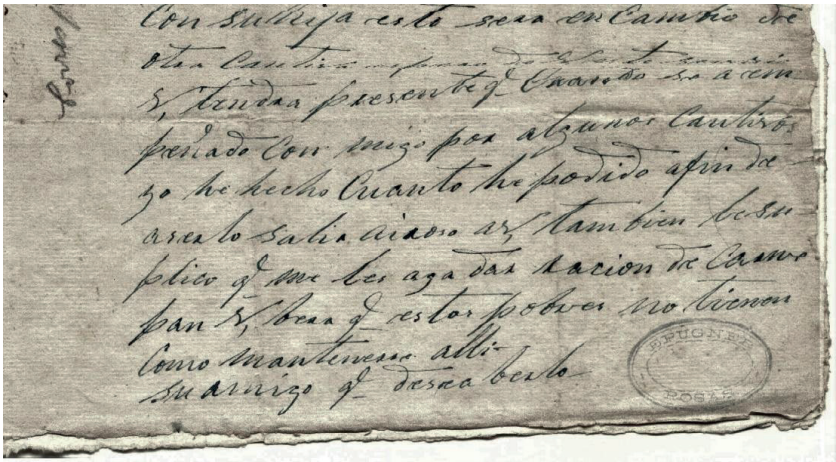 Con su hija esto sera en Cambio de
otra Cautiva
V, tendra presente q.e Cuando se a em
peñado Con migo por algunos Cautivos
yo he hecho Cuanto he podido afin de
aserlo salir airoso asi, tambien le su-
plico q.e me les aga dar racion de Carne
pan V, bera q.e estos pobres no tienen
Como mantenerse alli-
su amigo q.e desea berlo
EPUGNER
ROSAS